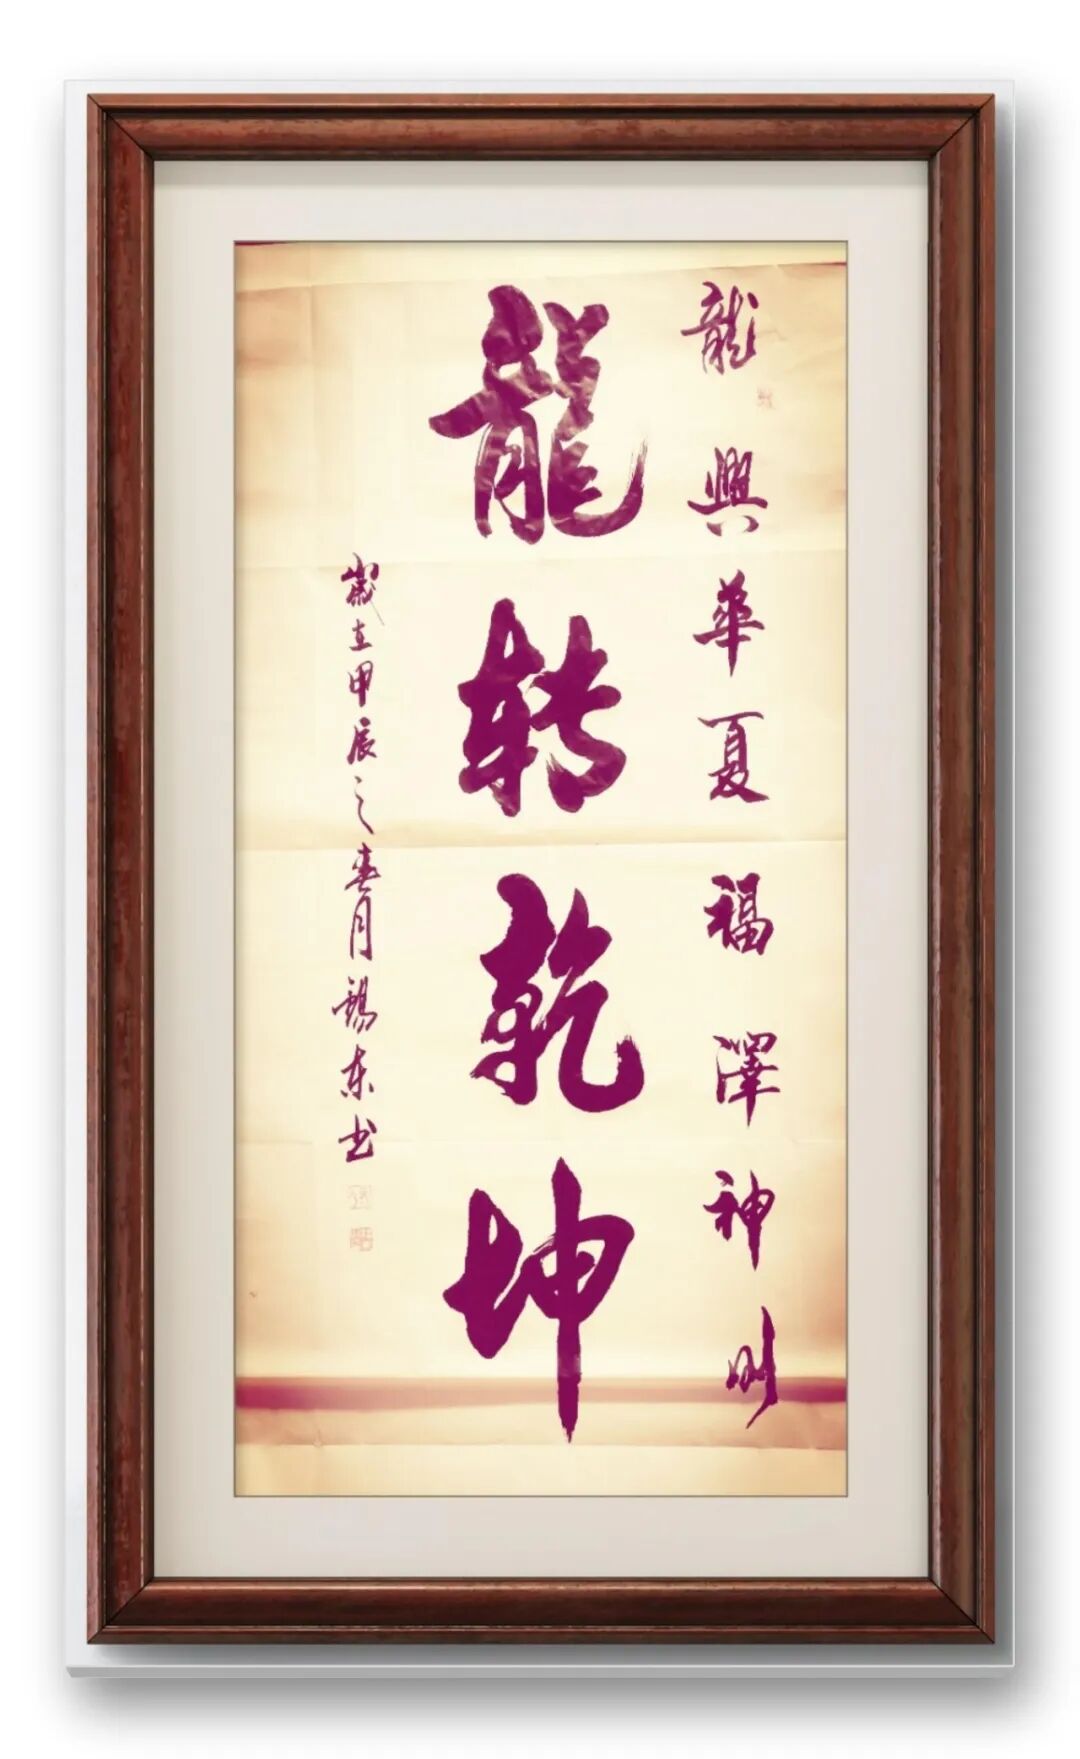 龍興華夏福澤神州
龍转乾坤
歲在甲辰之春月錫东书